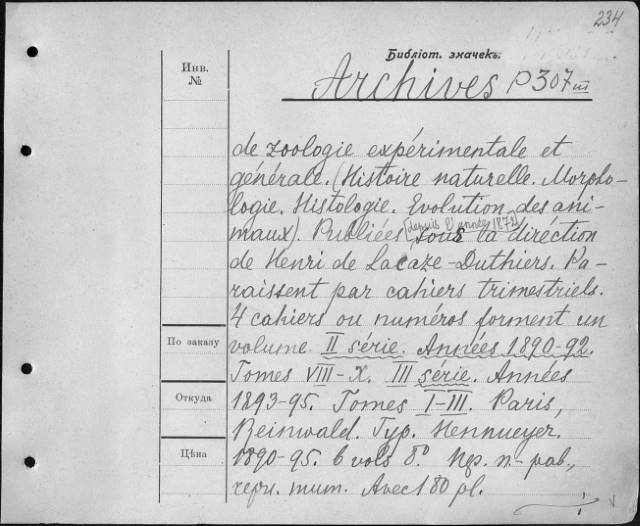 234
Библіот. значекъ.
Инв.
№
Archives P 307 III
de zoologie expérimentale et
générale. (Histoire naturelle. Morpho-
logie. Histologie. Evolution des ani-
maux). Publiées [depuis l'année 1872] sous la diréction
de Henri de Lacaze-Duthiers. Pa-
raissent par cahiers trimestriels.
4 cahiers ou numéros forment un
По заказу
volume. II série. Années 1890-92.
Tomes VIII-X. III série. Années
Откуда
1893-95. Tomes I-III. Paris,
Reinwald. Typ. Hennueyer.
Цѣна
1890-95. 6 vols 8°. пр. п.-раб.,
Avec 180 pl.